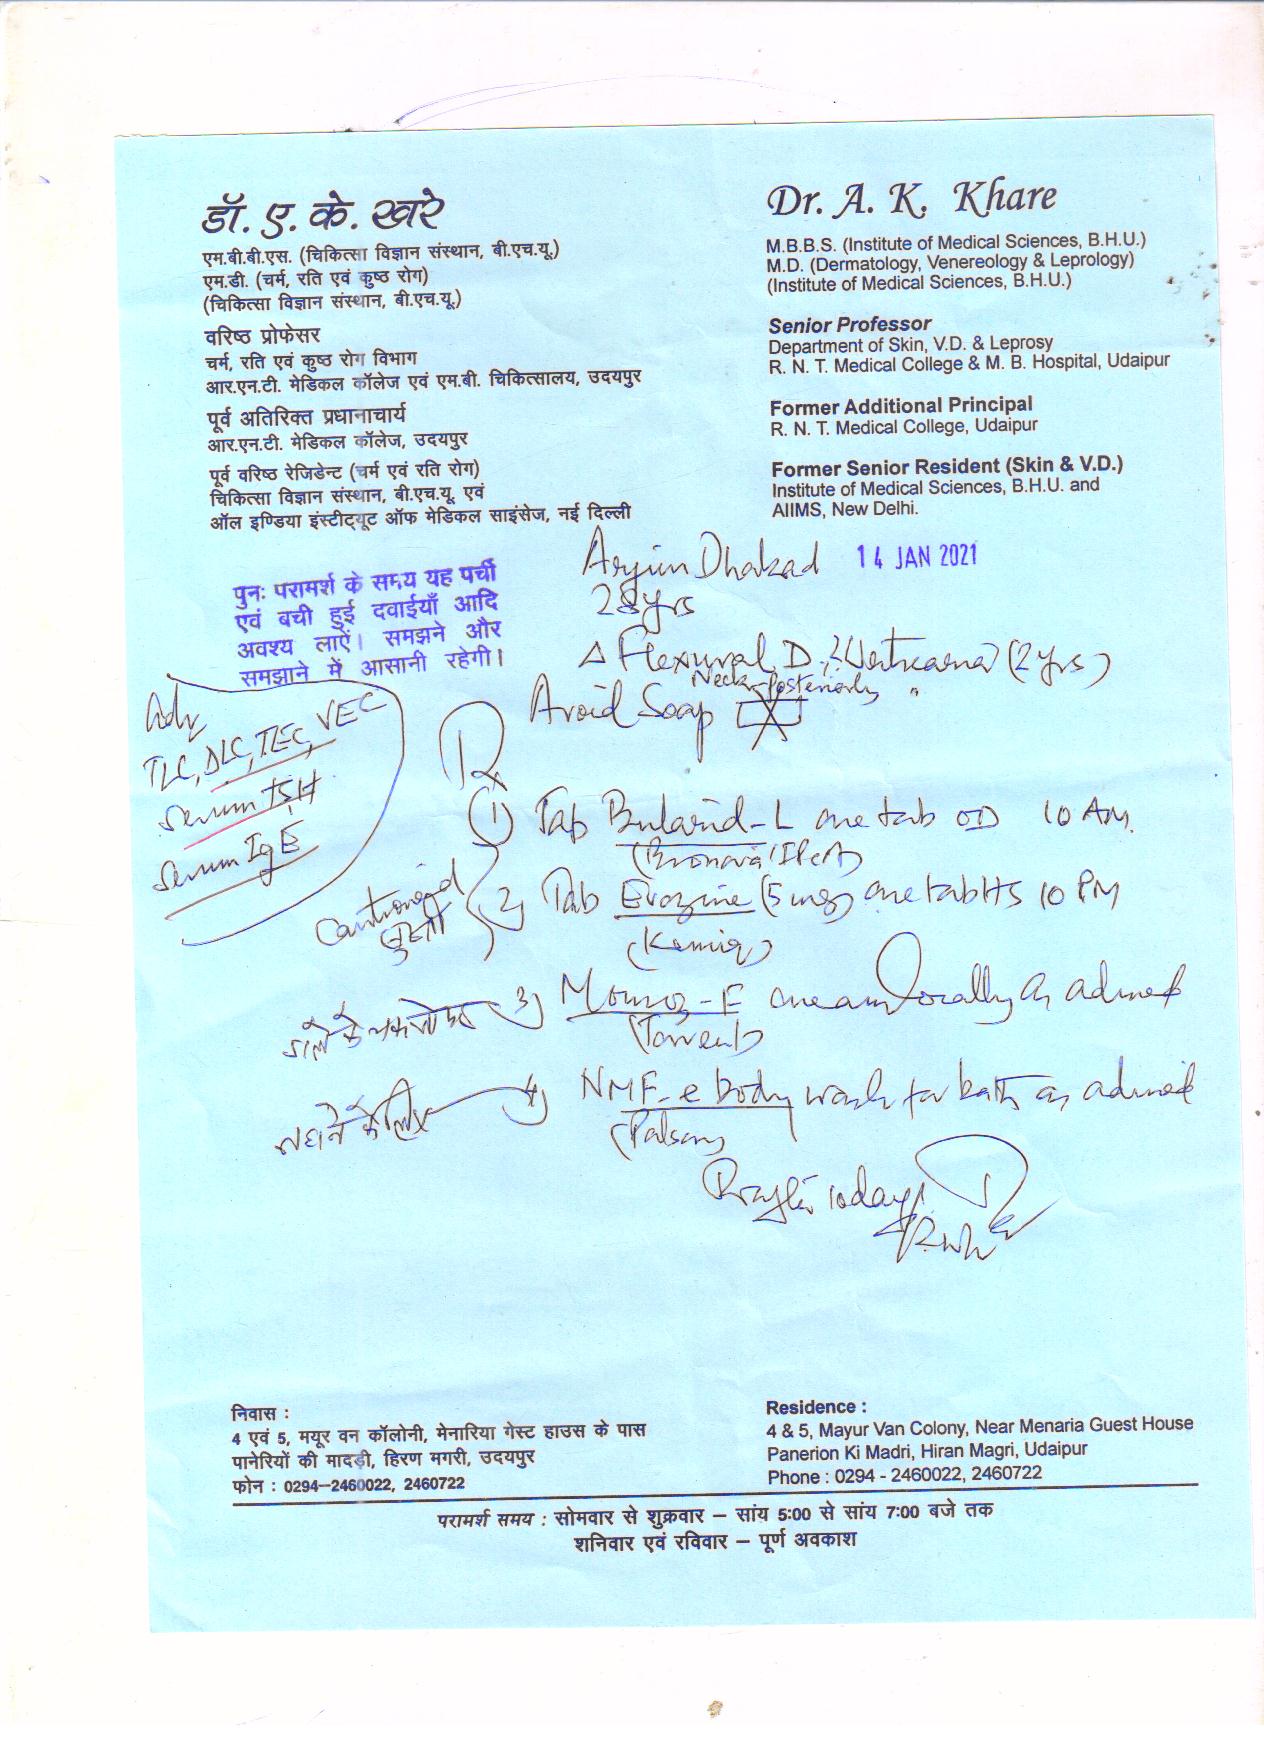 डॉ. ए. के. खरे
एम.बी.बी.एस. (चिकित्सा विज्ञान संस्थान, बी.एच.यू.)
एम.डी. (चर्म, रति एवं कुष्ठ रोग)
(चिकित्सा विज्ञान संस्थान, बी.एच.यू.)
वरिष्ठ प्रोफेसर
चर्म, रति एवं कुष्ठ रोग विभाग
आर.एन.टी. मेडिकल कॉलेज एवं एम.बी. चिकित्सालय, उदयपुर
पूर्व अतिरिक्त प्रधानाचार्य
आर.एन.टी. मेडिकल कॉलेज, उदयपुर
पूर्व वरिष्ठ रेजिडेन्ट (चर्म एवं रति रोग)
चिकित्सा विज्ञान संस्थान, बी.एच.यू. एवं
ऑल इण्डिया इंस्टीट्यूट ऑफ मेडिकल साइंसेज, नई दिल्ली
Dr. A. K. Khare
M.B.B.S. (Institute of Medical Sciences, B.H.U.)
M.D. (Dermatology, Venereology & Leprology)
(Institute of Medical Sciences, B.H.U.)
Senior Professor
Department of Skin, V.D. & Leprosy
R. N. T. Medical College & M. B. Hospital, Udaipur
Former Additional Principal
R. N. T. Medical College, Udaipur
Former Senior Resident (Skin & V.D.)
Institute of Medical Sciences, B.H.U. and
AIIMS, New Delhi.
पुनः परामर्श के समय यह पर्ची
एवं बची हुई दवाईयाँ आदि
अवश्य लाऐं। समझने और
समझाने में आसानी रहेगी।
Arjun Dhakad 14 JAN 2021
28 yrs
Δ Flexural D, (2 yrs)
Neck-posteriorly
Avoid Soap
Adv
TLC, DLC, TEC,
Serum TSH
Serum IgE
(1) Tab one tab OD 10 AM.
2) Tab (5 mg) one tab HS 10 PM
3) Momoz-F cream locally as advised
(Torrent)
4) NMF-e body wash for bath as advised
(Palsons)
नहाने के लिए
10 days
निवास :
4 एवं 5, मयूर वन कॉलोनी, मेनारिया गेस्ट हाउस के पास
पानेरियों की मादड़ी, हिरण मगरी, उदयपुर
फोन : 0294–2460022, 2460722
Residence :
4 & 5, Mayur Van Colony, Near Menaria Guest House
Panerion Ki Madri, Hiran Magri, Udaipur
Phone : 0294 - 2460022, 2460722
परामर्श समय : सोमवार से शुक्रवार – सांय 5:00 से सांय 7:00 बजे तक
शनिवार एवं रविवार – पूर्ण अवकाश